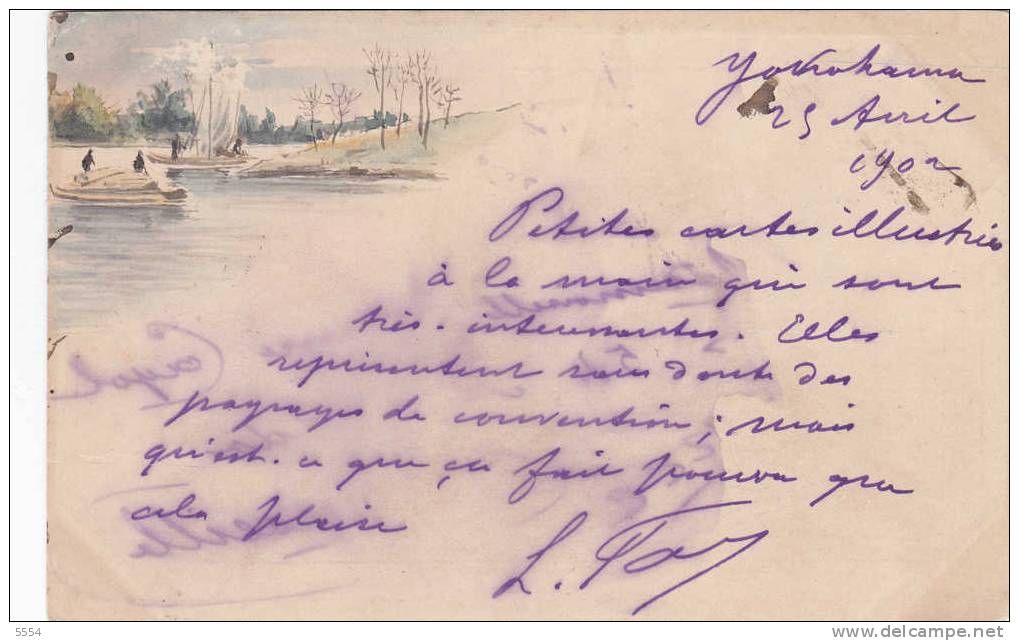 Yokohama
25 Avril
1902
Petites cartes illustrées
à la main qui sont
très-intéressantes. Elles
représentent sans doute des
paysages de convention; mais
qu'est-ce que ça fait pourvu que
cela plaise
L.
5554
www.delcampe.net